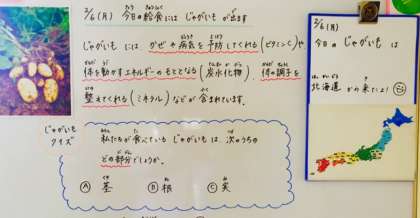 2/6(月) 今日の給食には じゃがいも が出ます
じゃがいも には かぜや病気を予防してくれる(ビタミンC)や
体を動かすエネルギーのもととなる(炭水化物)、体の調子を
整えてくれる(ミネラル)などが 含まれています。
じゃがいも
クイズ
私たちが 食べている じゃがいも は 次のうちの
どの部分でしょうか。
Ⓐ 茎 Ⓑ 根 Ⓒ 実
2/6(月)
今日の じゃがいも は
北海道から来たよ!